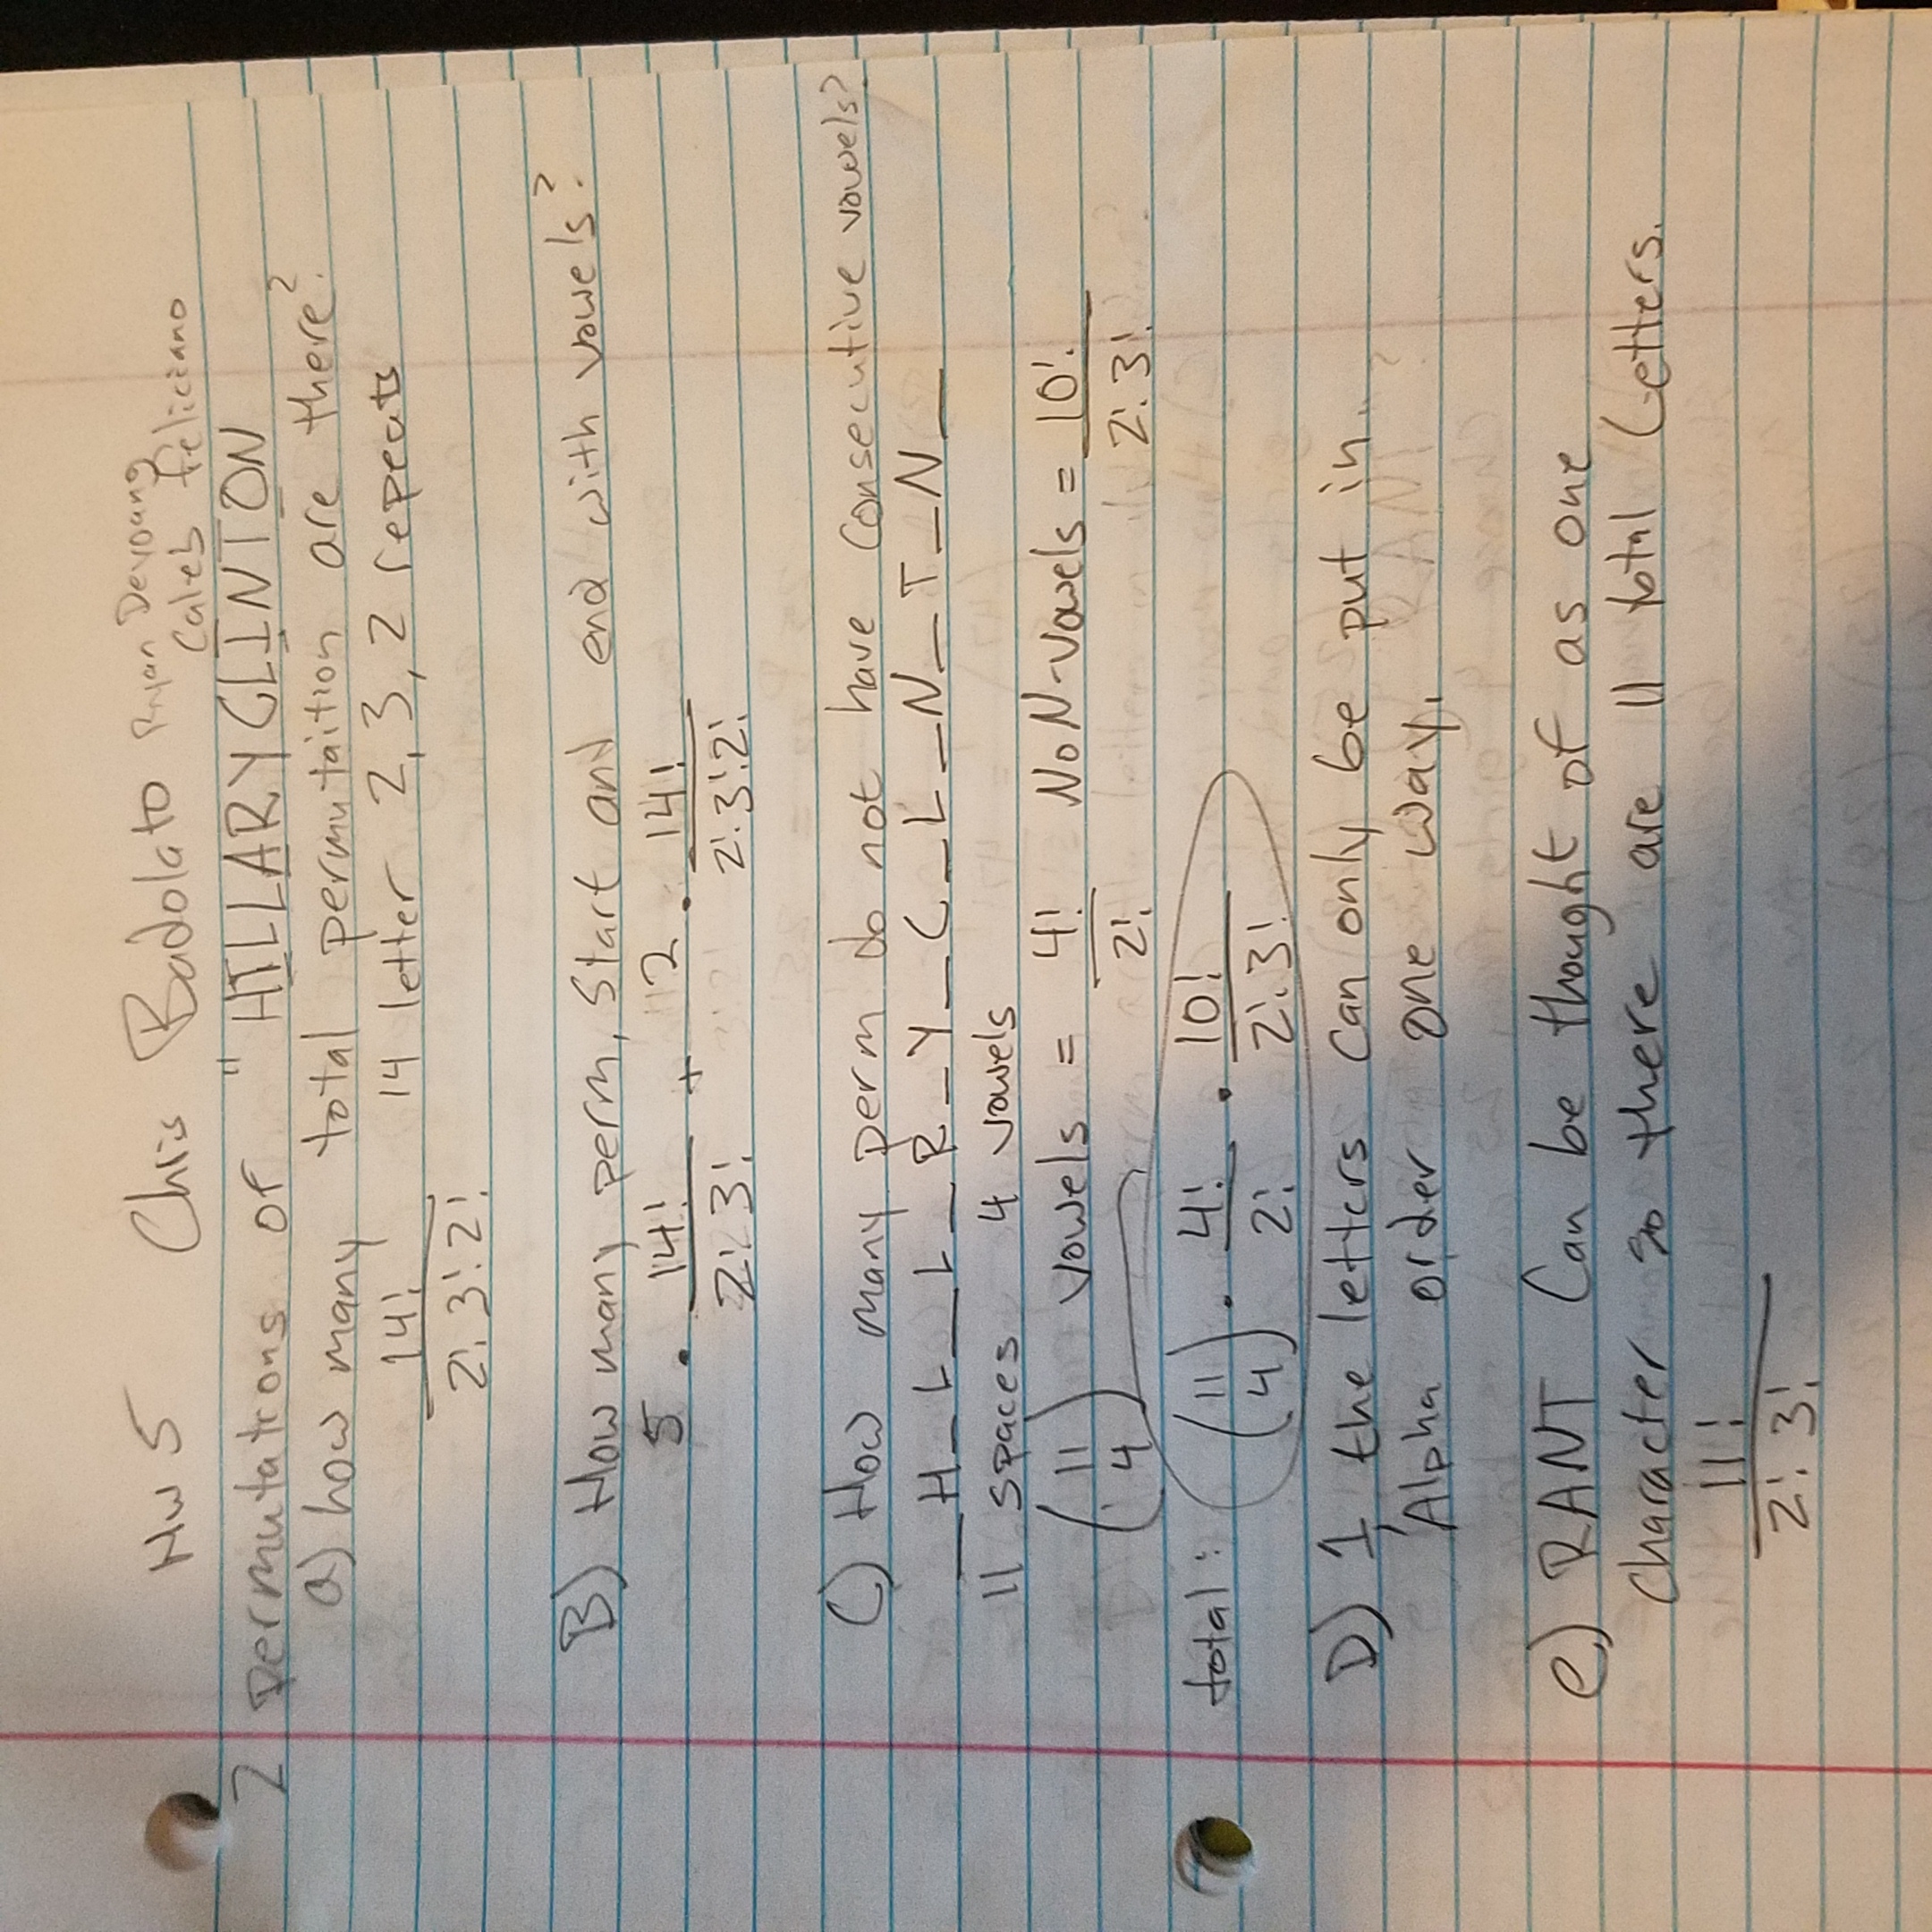 HW 5 Chris Badolato Ryan Deyoung
Caleb Feliciano
2 permutations of "HILLARYCLINTON
a) how many total permutaition are there?
14! 14 letter 2, 3, 2 repeats
2! 3! 2!
B) How many perm, Start and end with vowels?
5 · 14! + 12 · 14!
2! 3! 2! 3! 2!
C) How many perm do not have consecutive vowels?
_ H _ L _ L _ R _ Y _ C _ L _ N _ T _ N _
11 spaces 4 vowels
(11 4) vowels = 4! NoN-vowels = 10!
2! 2! 3!
total: (11 4) · 4! · 10!
2! 2! 3!
D) 1, the letters can only be put in
Alpha order one way.
e) RANT Can be thought of as one
character so there are 11 total letters.
11!
2! 3!